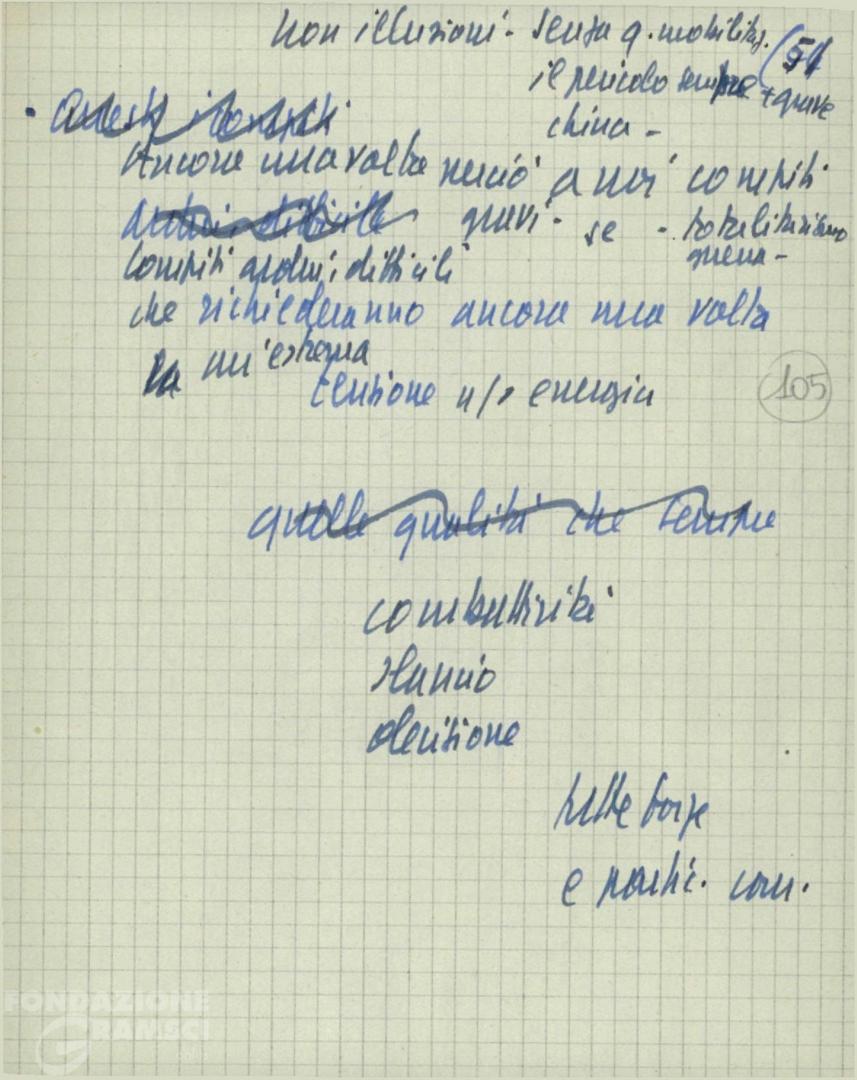 non illusioni - senza q. mobilitaz.
(51
il pericolo sempre + grave
china -
. Questi i compiti
Ancora una volta perciò a noi compiti
ardui, difficili gravi - se - totalitarismo
guerra -
Compiti ardui, difficili
che richiederanno ancora una volta
un'estrema
tensione n/s energia
105
quelle qualità che sempre
combattività
slancio
decisione
tutte forze
e partic. com.
FONDAZIONE
GRAMSCI